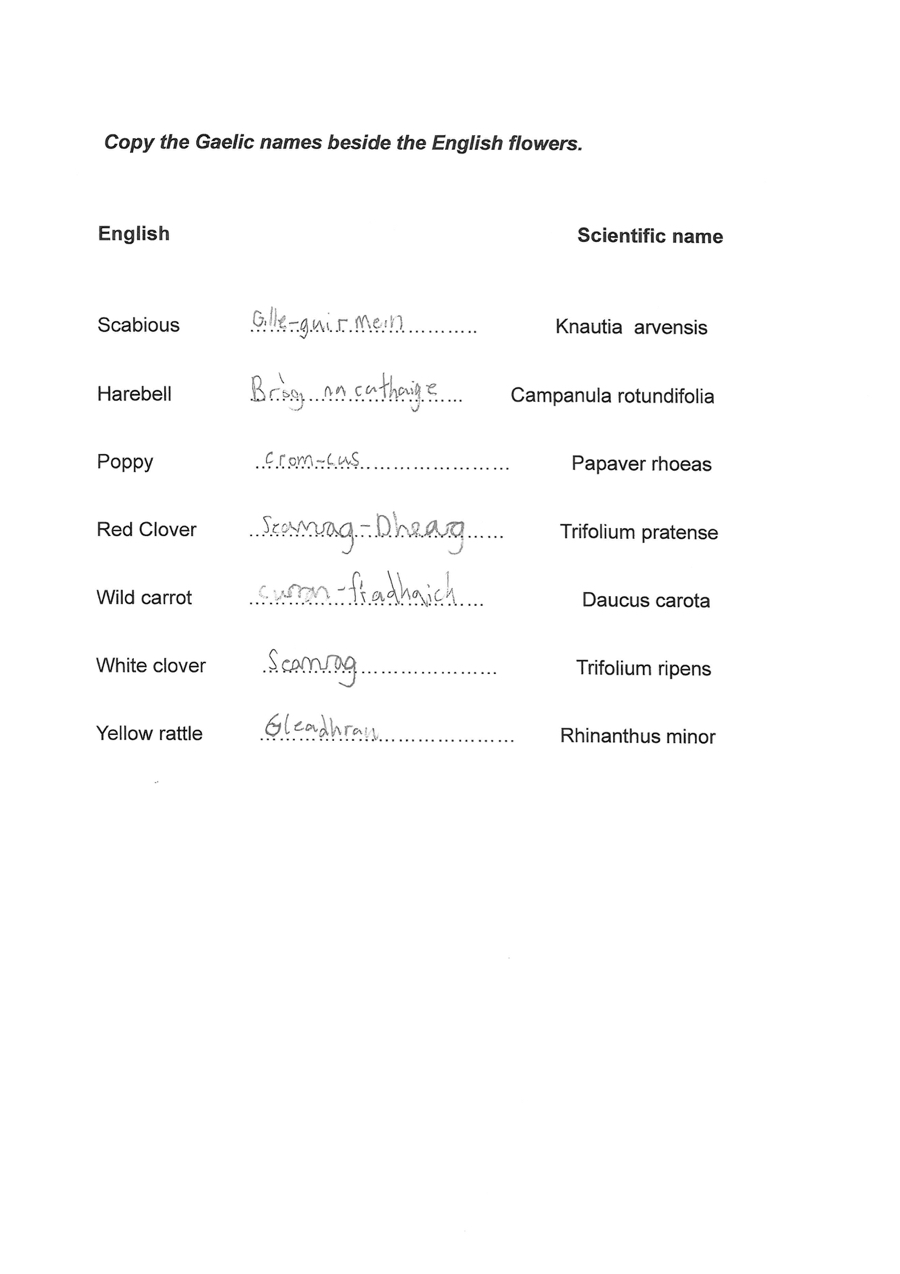 Copy the Gaelic names beside the English flowers.
English Scientific name
Scabious Gille-guirmein Knautia arvensis
Harebell Bròg na cuthaige Campanula rotundifolia
Poppy crom-lus Papaver rhoeas
Red Clover Seamrag-Dhearg Trifolium pratense
Wild carrot curran-fiadhaich Daucus carota
White clover Seamrag Trifolium ripens
Yellow rattle Gleadhran Rhinanthus minor